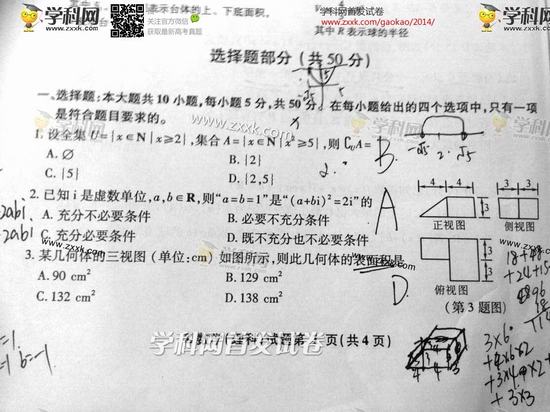 学科网 www.zxxk.com
表示台体的上、下底面积,
扫描二维码
关注官方微信
获取最新高考真题
学科网首发试卷
www.zxxk.com/gaokao/2014/
其中 R 表示球的半径
学科网 www.zxxk.com
选择题部分(共 50 分)
一、选择题:本大题共 10 小题,每小题 5 分,共 50 分。在每小题给出的四个选项中,只有一项
是符合题目要求的。
1. 设全集 U={x∈N|x≥2},集合 A={x∈N|x²≥5},则 C_U A=
B.
A. ∅
B. {2}
C. {5}
D. {2,5}
-√5 2 √5
2. 已知 i 是虚数单位,a,b∈R,则“a=b=1”是“(a+bi)²=2i”的
A
A. 充分不必要条件
B. 必要不充分条件
C. 充分必要条件
D. 既不充分也不必要条件
2abi
2abi
3. 某几何体的三视图(单位:cm)如图所示,则此几何体的表面积是
D.
A. 90 cm²
B. 129 cm²
C. 132 cm²
D. 138 cm²
4 4 3
正视图
侧视图
3
3
俯视图
(第 3 题图)
3×6
+4×6×2
+3×3
b=-1
学科网首发试卷
共 4 页)